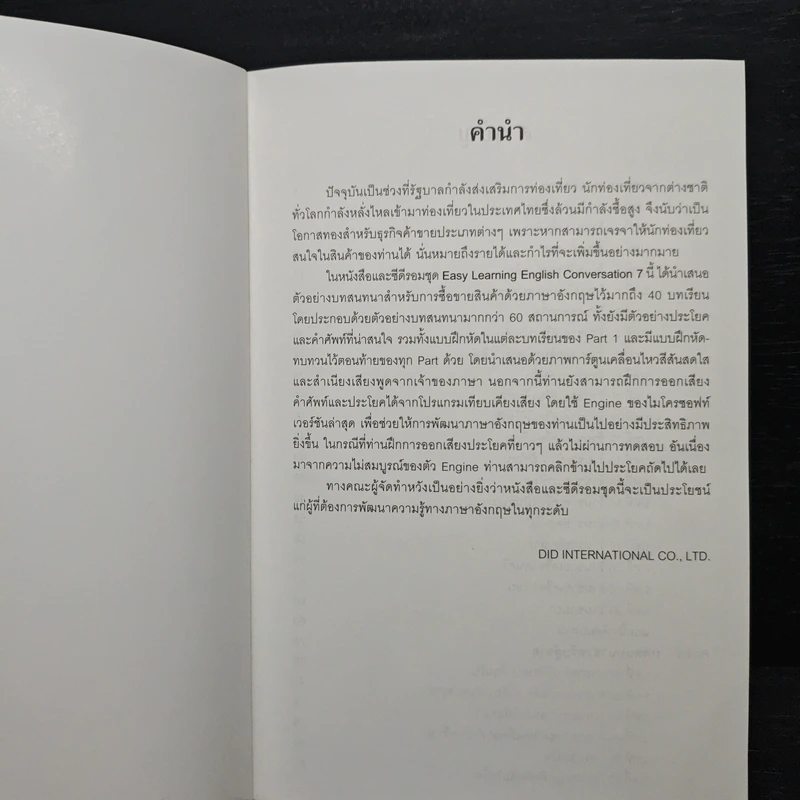 คำนำ
ปัจจุบันเป็นช่วงที่รัฐบาลกำลังส่งเสริมการท่องเที่ยว นักท่องเที่ยวจากต่างชาติ
ทั่วโลกกำลังหลั่งไหลเข้ามาท่องเที่ยวในประเทศไทยซึ่งล้วนมีกำลังซื้อสูง จึงนับว่าเป็น
โอกาสทองสำหรับธุรกิจค้าขายประเภทต่างๆ เพราะหากสามารถเจรจาให้นักท่องเที่ยว
สนใจในสินค้าของท่านได้ นั่นหมายถึงรายได้และกำไรที่จะเพิ่มขึ้นอย่างมากมาย
ในหนังสือและซีดีรอมชุด Easy Learning English Conversation 7 นี้ ได้นำเสนอ
ตัวอย่างบทสนทนาสำหรับการซื้อขายสินค้าด้วยภาษาอังกฤษไว้มากถึง 40 บทเรียน
โดยประกอบด้วยตัวอย่างบทสนทนามากกว่า 60 สถานการณ์ ทั้งยังมีตัวอย่างประโยค
และคำศัพท์ที่น่าสนใจ รวมทั้งแบบฝึกหัดในแต่ละบทเรียนของ Part 1 และมีแบบฝึกหัด-
ทบทวนไว้ตอนท้ายของทุก Part ด้วย โดยนำเสนอด้วยภาพการ์ตูนเคลื่อนไหวสีสันสดใส
และสำเนียงเสียงพูดจากเจ้าของภาษา นอกจากนี้ท่านยังสามารถฝึกการออกเสียง
คำศัพท์และประโยคได้จากโปรแกรมเทียบเคียงเสียง โดยใช้ Engine ของไมโครซอฟท์
เวอร์ชันล่าสุด เพื่อช่วยให้การพัฒนาภาษาอังกฤษของท่านเป็นไปอย่างมีประสิทธิภาพ
ยิ่งขึ้น ในกรณีที่ท่านฝึกการออกเสียงประโยคที่ยาวๆ แล้วไม่ผ่านการทดสอบ อันเนื่อง
มาจากความไม่สมบูรณ์ของตัว Engine ท่านสามารถคลิกข้ามไปประโยคถัดไปได้เลย
ทางคณะผู้จัดทำหวังเป็นอย่างยิ่งว่าหนังสือและซีดีรอมชุดนี้จะเป็นประโยชน์
แก่ผู้ที่ต้องการพัฒนาความรู้ทางภาษาอังกฤษในทุกระดับ
DID INTERNATIONAL CO., LTD.